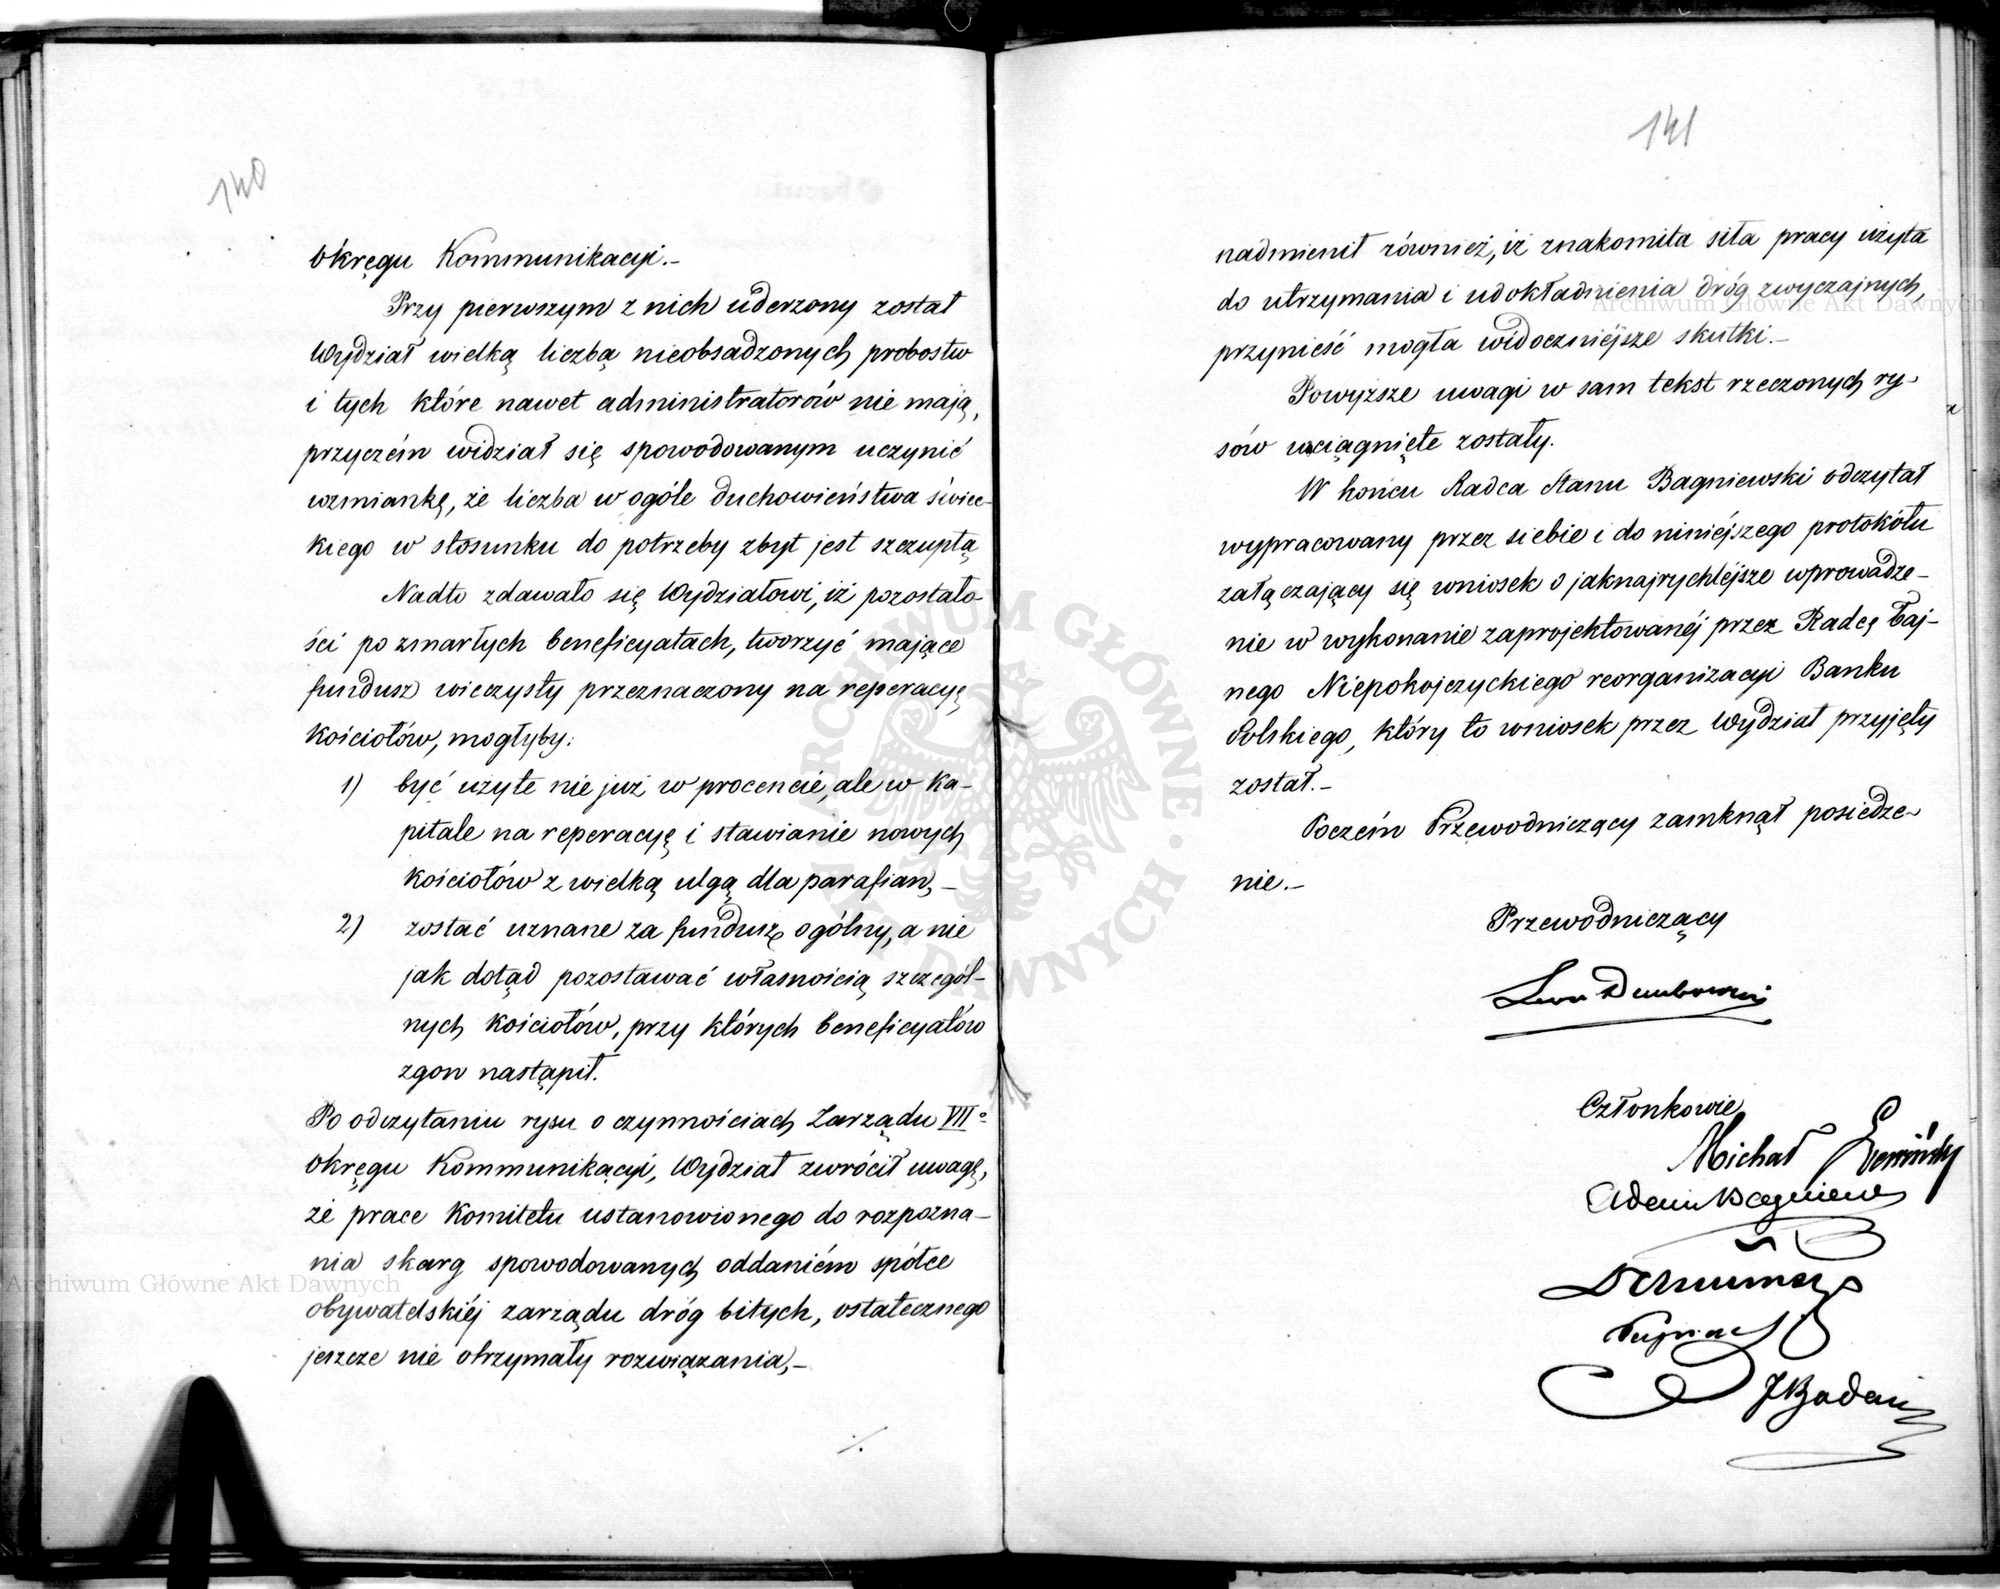 140
Okręgu Kommunikacyi.–
Przy pierwszym z nich uderzony został
Wydział wielką liczbą nieobsadzonych probostw
i tych które nawet administratorów nie mają,
przyczém widział się spowodowanym uczynić
wzmiankę, że liczba w ogóle duchowieństwa świec-
kiego w stosunku do potrzeby zbyt jest szczupłą
Nadto zdawało się Wydziałowi, iż pozostało-
ści po zmarłych beneficyatach, tworzyć mające
fundusz wieczysty przeznaczony na reperacyę
kościołów, mogłyby:
1) być użyte nie już w procencie, ale w ka-
pitale na reperacyę i stawianie nowych
kościołów z wielką ulgą dla parafian,–
2) zostać uznane za fundusz ogólny, a nie
jak dotąd pozostawać własnością szczegól-
nych kościołów, przy których beneficyatów
zgon nastąpił.
Po odczytaniu rysu o czynnościach Zarządu VIIo
Okręgu Kommunikacyi, Wydział zwrócił uwagę,
że prace Komitetu ustanowionego do rozpozna-
nia skarg spowodowanych oddaniém spółce
obywatelskiéj zarządu dróg bitych, ostatecznego
jeszcze nie otrzymały rozwiązania,–
./.
141
nadmienił również, iż znakomita siła pracy użyta
do utrzymania i udokładnienia dróg zwyczajnych,
przynieść mogła widoczniéjsze skutki.–
Powyższe uwagi w sam tekst rzeczonych ry-
sów wciągnięte zostały.
W końcu Radca Stanu Bagniewski odczytał
wypracowany przez siebie i do niniéjszego protokółu
załączający się wniosek o jaknajrychléjsze wprowadze-
nie w wykonanie zaprojektowanéj przez Radcę Taj-
nego Niepokojczyckiego reorganizacyi Banku
Polskiego, który to wniosek przez Wydział przyjęty
został.–
Poczém Przewodniczący zamknął posiedze-
nie.–
Przewodniczący
Leon Dembowski
Członkowie
Michał
Adam Bagniewski
J Badeni
ARCHIWUM GŁÓWNE AKT DAWNYCH
Archiwum Główne Akt Dawnych
Archiwum Główne Akt Dawnych